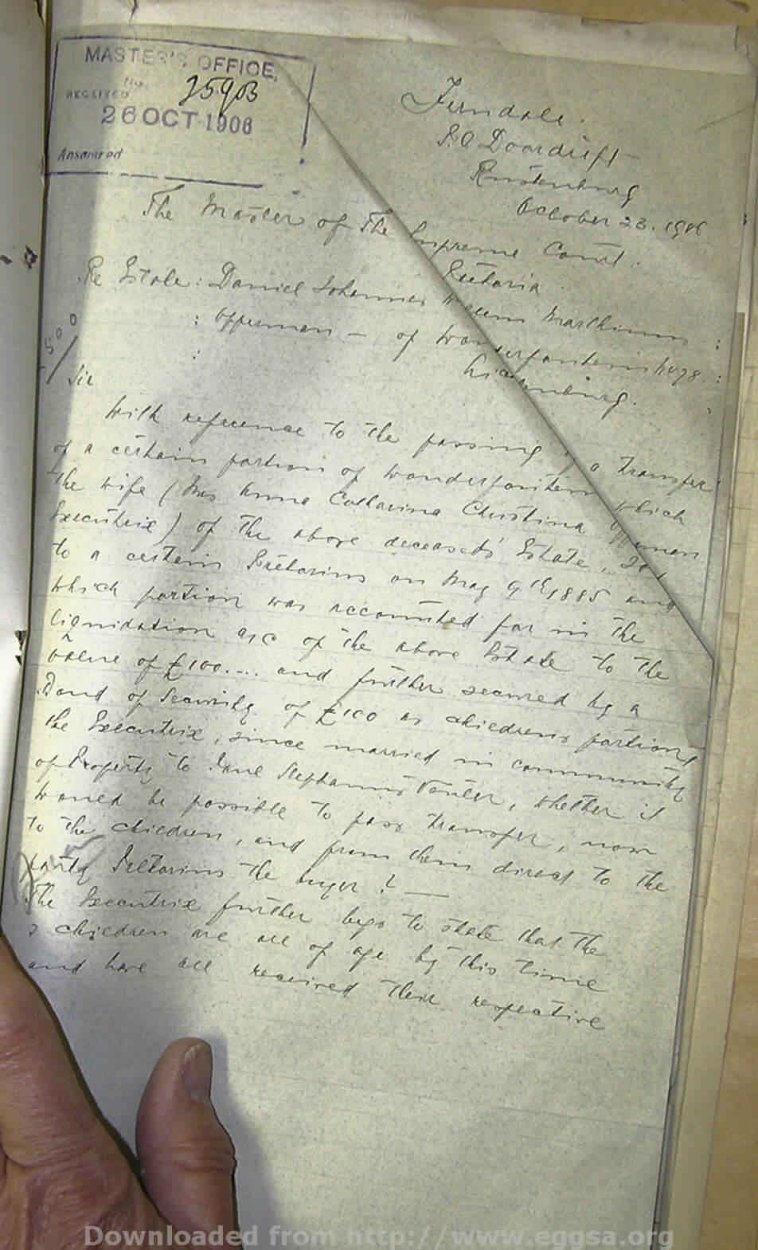 MASTER'S OFFICE,
No. 25903
RECEIVED
26 OCT 1906
Answered
Ferndale.
P.O. Doordrift
Rustenburg
October 23. 1906
The Master of the Supreme Court.
Pretoria.
Re Estate: Daniel Johannes Marthinus :
: Opperman - of Wonderfontein No 78 :
: Lichtenburg.
500/
Sir
With reference to the passing a transfer
of a certain portion of Wonderfontein which
the wife (Mrs Anna Catharina Christina Opperman
Executrix) of the above deceased's Estate,
to a certain Pretorius on May 9th 1885 and
which portion was accounted for in the
liquidation a/c of the above Estate to the
value of £100.... and further secured by a
Bond of Security of £100 as children's portions,
the Executrix, since married in community
of Property to Stephanus Venter, whether it
would be possible to pass transfer, now
to the children, and from them direct to the
party Pretorius the buyer? —
The Executrix further begs to state that the
children are all of age by this time
and have all received their respective
Downloaded from http://www.eggsa.org